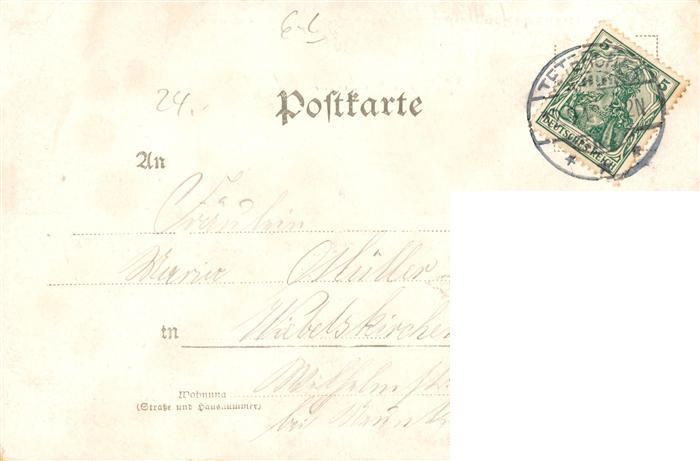 6-L
24.
Postkarte
5 5
DEUTSCHES REICH
An
Fräulein
Maria Müller
in Wiebelskirchen
Wilhelmstr
Wohnung
(Straße und Hausnummer)
bei